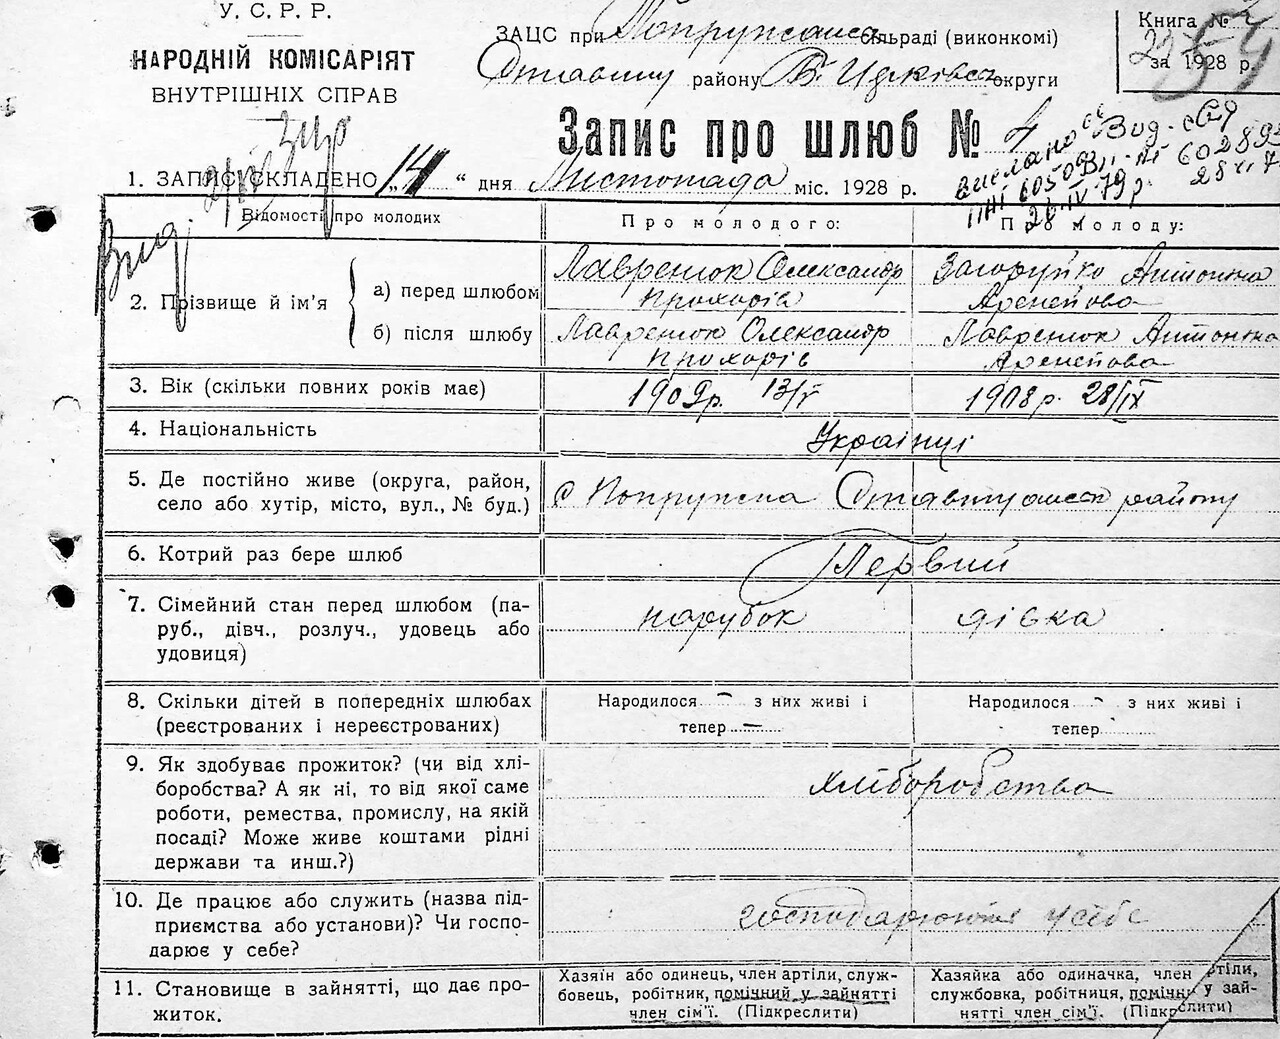 У. С. Р. Р.
НАРОДНІЙ КОМІСАРІЯТ
ВНУТРІШНІХ СПРАВ
ЗАЦС при сільраді (виконкомі)
району округи
Книга №
за 1928 р.
Запис про шлюб № 4
1. ЗАПИС СКЛАДЕНО „14“ дня Листопада міс. 1928 р.
Відомості про молодих
Про молодого:
Про молоду:
2. Прізвище й ім'я
а) перед шлюбом
Лавренюк Олександр
Прохорів
Загоруйко Антонина
б) після шлюбу
Лавренюк Олександр
Прохорів
Лавренюк Антонина
3. Вік (скільки повних років має)
1909р. 13/V
1908 р. 28/IX
4. Національність
Українці
5. Де постійно живе (округа, район,
село або хутір, місто, вул., № буд.)
с Попружна району
6. Котрий раз бере шлюб
Первий
7. Сімейний стан перед шлюбом (па-
руб., дівч., розлуч., удовець або
удовиця)
парубок
дівка
8. Скільки дітей в попередніх шлюбах
(реєстрованих і нереєстрованих)
Народилося – з них живі і
тепер –
Народилося - з них живі і
тепер
9. Як здобуває прожиток? (чи від хлі-
боробства? А як ні, то від якої саме
роботи, ремества, промислу, на якій
посаді? Може живе коштами рідні
держави та инш.?)
хліборобства
10. Де працює або служить (назва під-
приємства або установи)? Чи госпо-
дарює у себе?
у себе
11. Становище в зайнятті, що дає про-
житок.
Хазяїн або одинець, член артіли, служ-
бовець, робітник, помічний у зайнятті
член сім'ї. (Підкреслити)
Хазяйка або одиначка, член артіли,
службовка, робітниця, помічн у зай-
нятті член сім'ї. (Підкреслити)